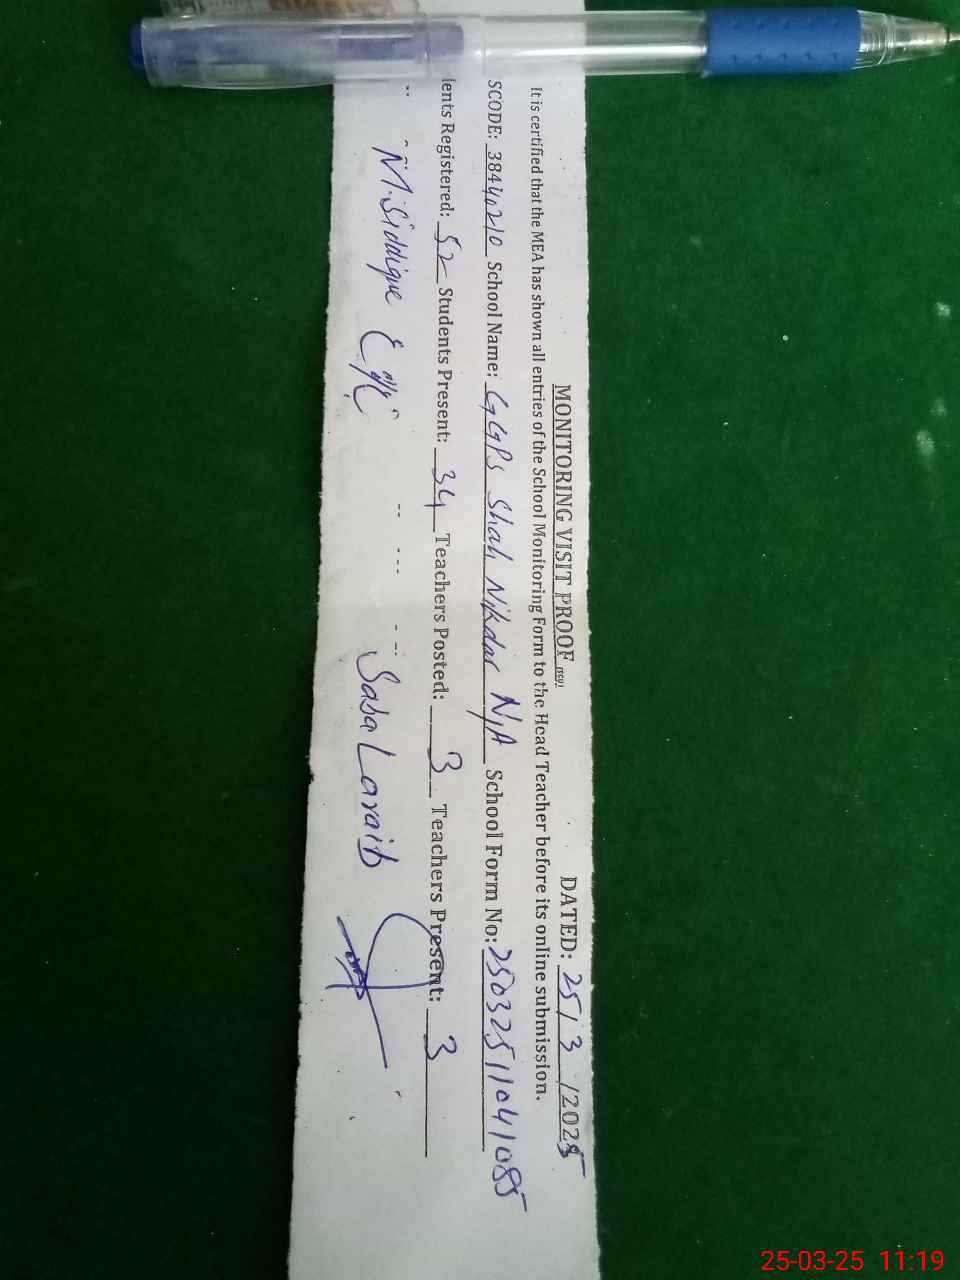 MONITORING VISIT PROOF DATED: 25/3/2025
It is certified that the MEA has shown all entries of the School Monitoring Form to the Head Teacher before its online submission.
SCODE: 38440210 School Name: GGPS Shah Nikdar N/A School Form No: 25032511041085
lents Registered: 52 Students Present: 34 Teachers Posted: 3 Teachers Present: 3
M. Siddique Saba Laraib
25-03-25 11:19